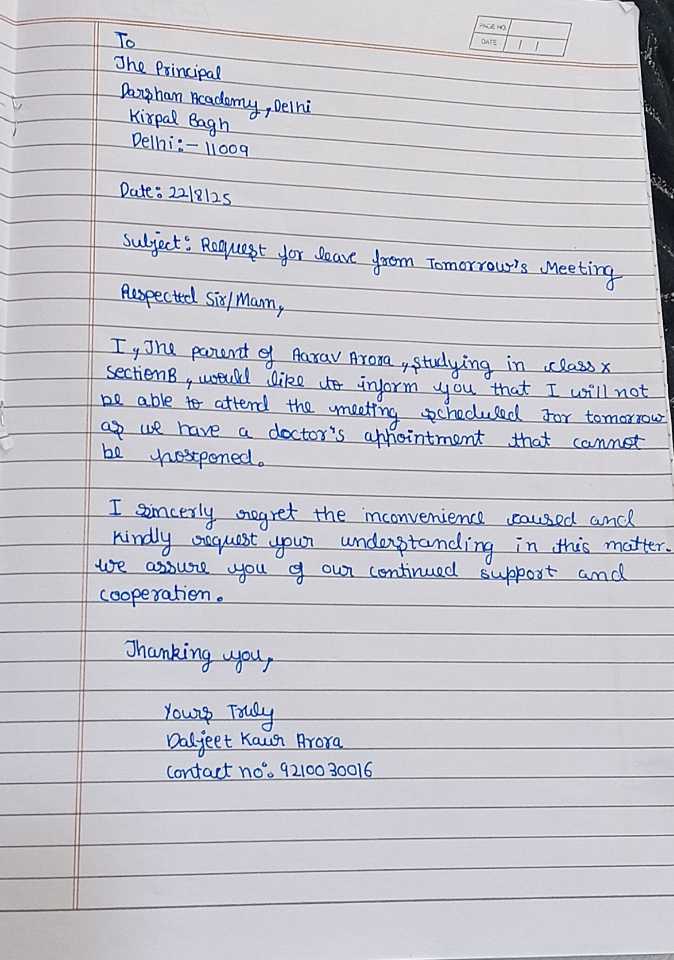 PAGE NO.
DATE / /
To
The Principal
Darshan Academy, Delhi
Kirpal Bagh
Delhi:- 11009
Date: 22/8/25
Subject: Request for leave from Tomorrow's Meeting
Respected Sir/Mam,
I, The parent of Aarav Arora, studying in class X
section B, would like to inform you that I will not
be able to attend the meeting scheduled for tomorrow
as we have a doctor's appointment that cannot
be postponed.
I sincerly regret the inconvenience caused and
kindly request your understanding in this matter.
we assure you of our continued support and
cooperation.
Thanking you,
Yours Truly
Daljeet Kaur Arora
Contact no: 9210030016